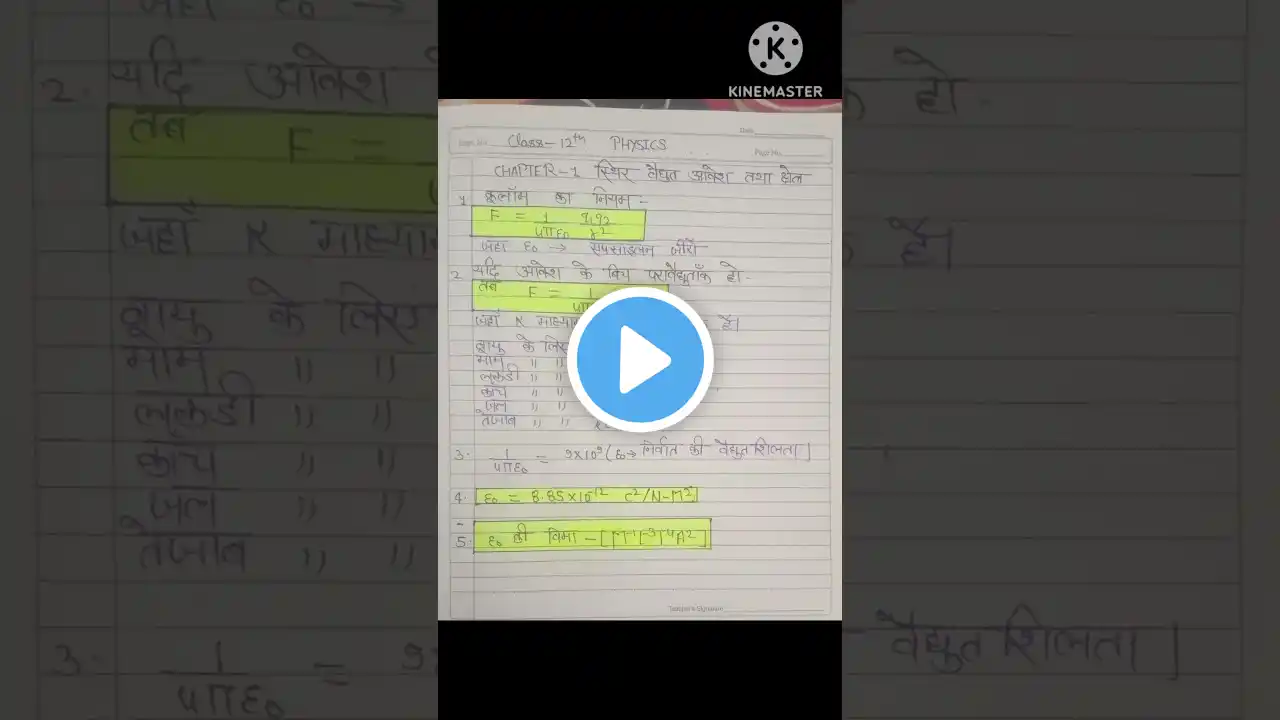 KINEMASTER
Date
Class-12th PHYSICS
Page No.
CHAPTER-1 स्थिर वैद्युत आवेश तथा क्षेत्र
1 कूलॉम का नियम -
F = 1/4πε₀ q₁q₂/r²
जहाँ ε₀ →
2. यदि आवेश के बिच परावैद्युताँक हो -
तब F = 1
जहाँ K माध्यम है।
वायु के लिए
मोम " "
लकडी " "
काँच " "
जल " "
तेजाब " "
3. 1/4πε₀ = 9×10⁹ (ε₀→ निर्वात की वैद्युतशिलता)
4. ε₀ = 8.85×10⁻¹² C²/N-M²
5. ε₀ की विमा - [M⁻¹L⁻³T⁴A²]
Teacher's Signature